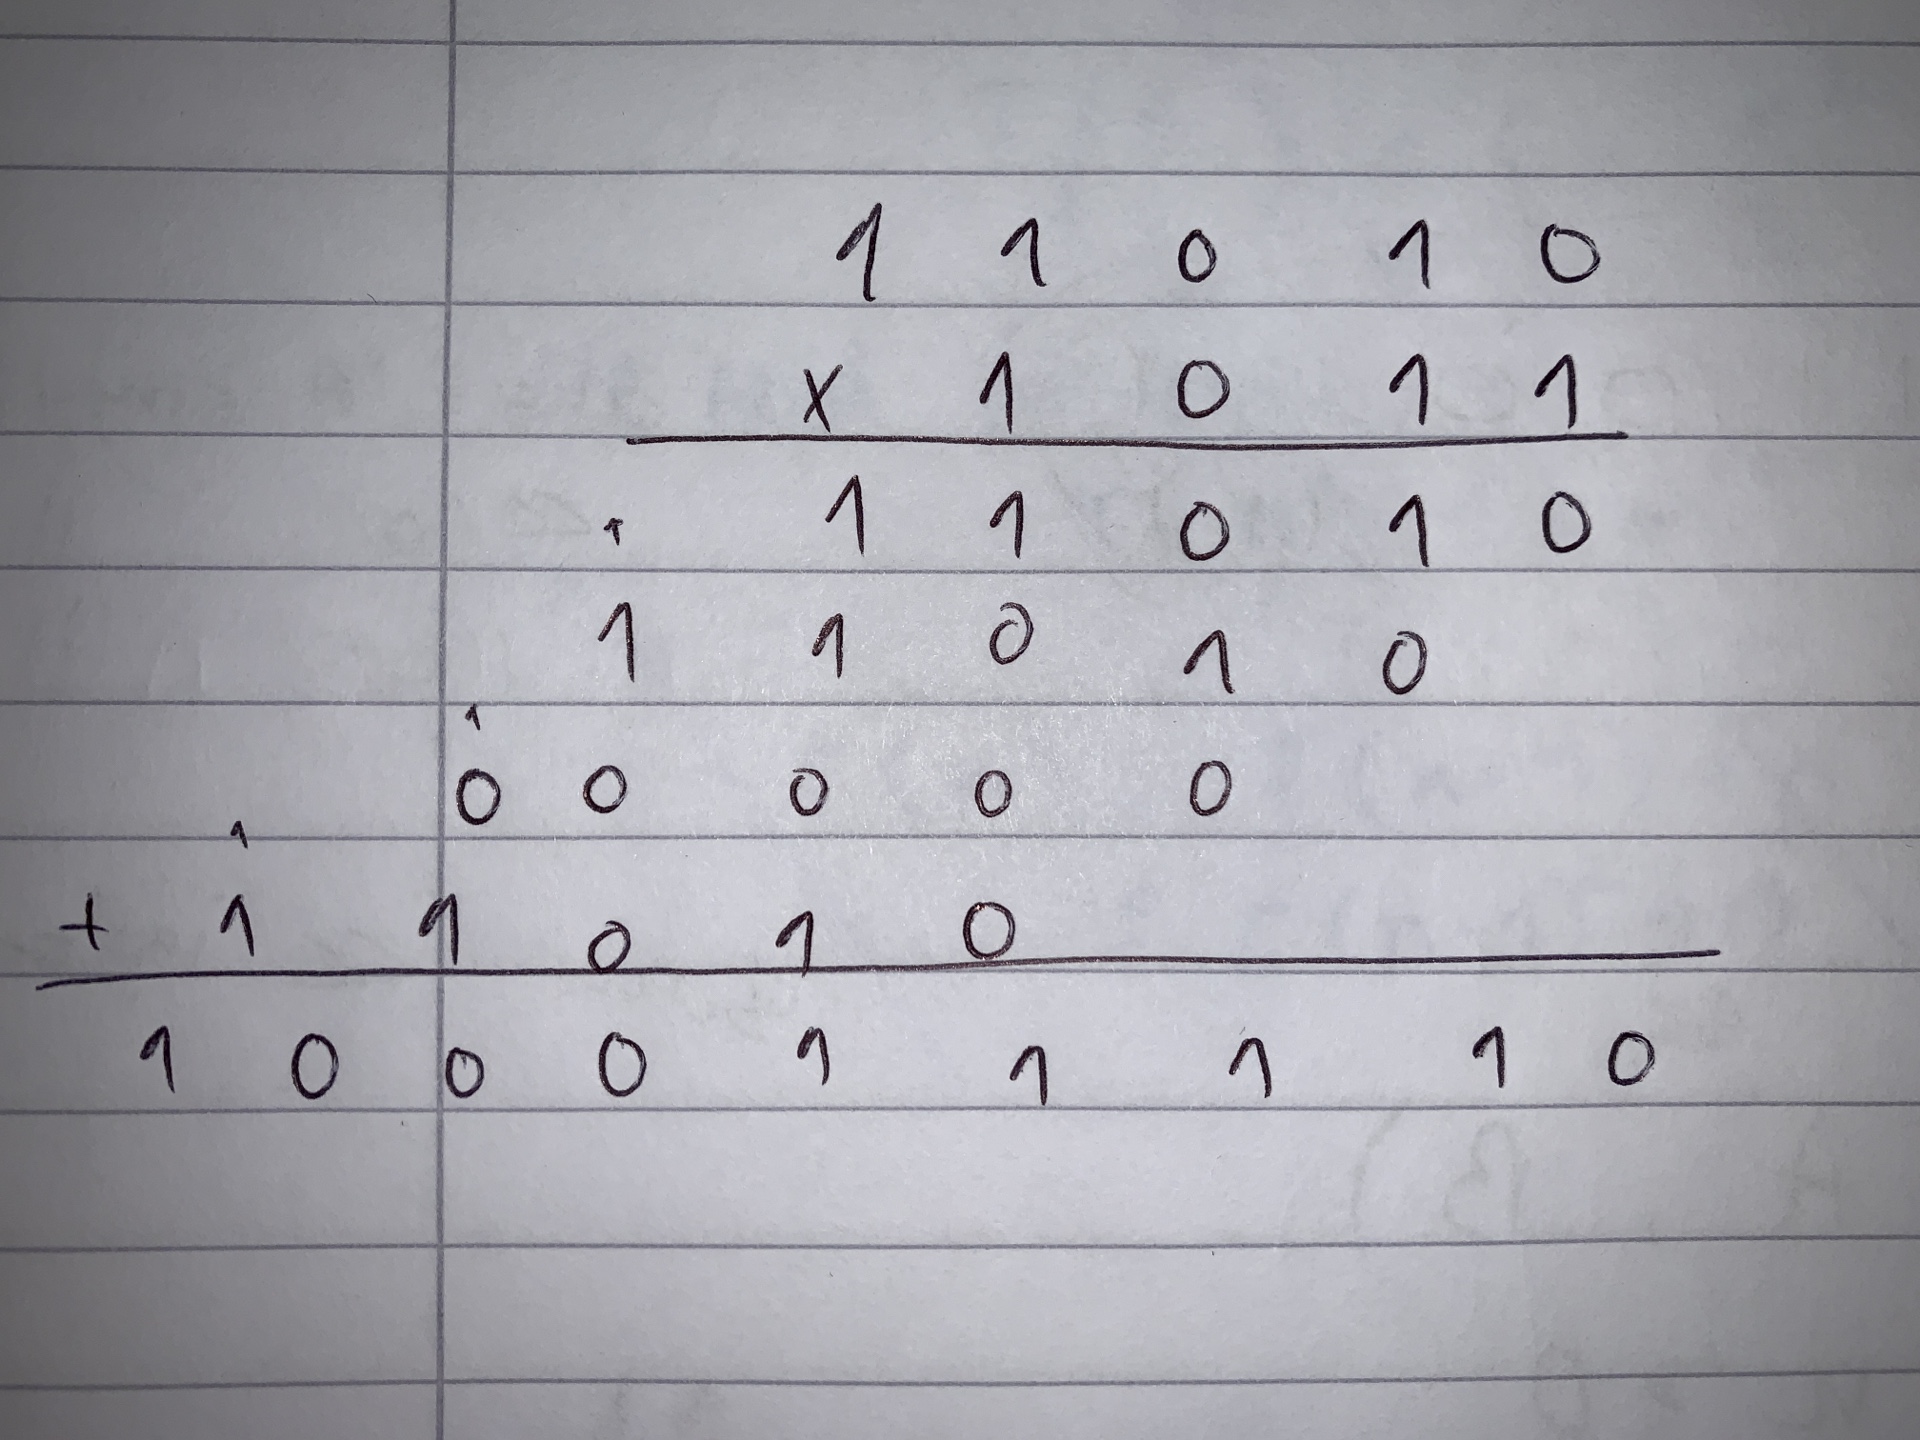 1 1 0 1 0
x 1 0 1 1
1 1 1 0 1 0
1 1 0 1 0
1
0 0 0 0 0
1
+ 1 1 0 1 0
1 0 0 0 1 1 1 1 0